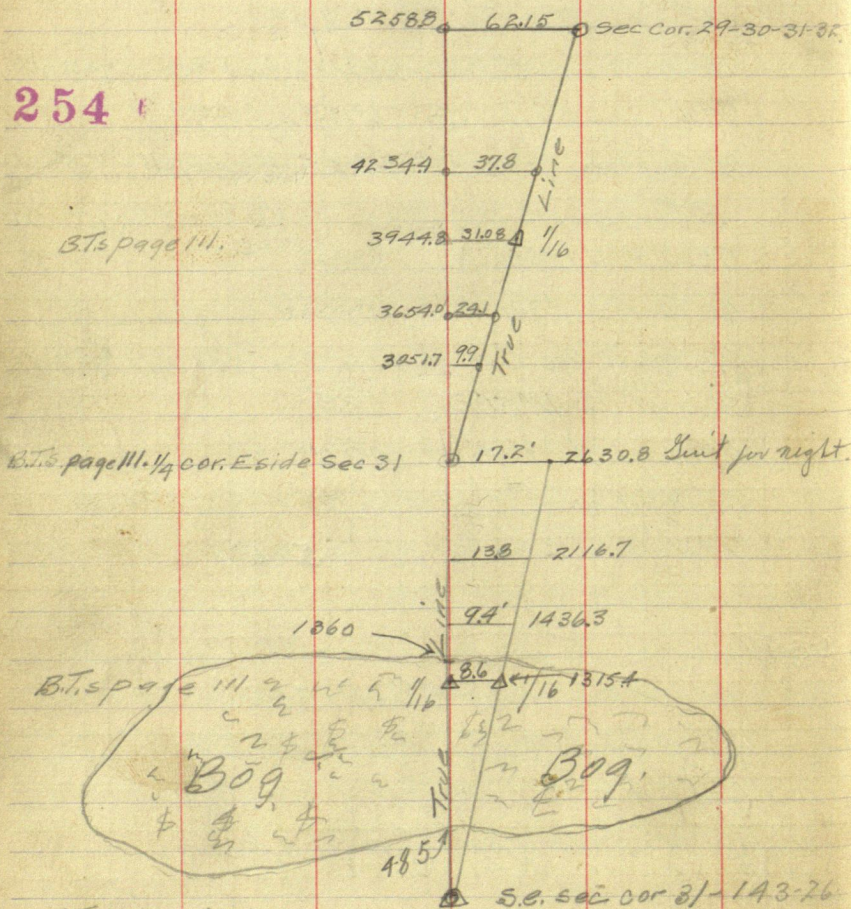 5258.8 62.15 Sec Cor. 29-30-31-32
254
4234.4 37.8
Line
B.T.s page 111. 3944.8 31.08 1/16
3654.0 24.1
True
3051.7 9.9
B.T.s. page 111. 1/4 cor. E side Sec 31 17.2' 2630.8 Quit for night.
13.8 2116.7
9.4' 1436.3
Line
1360
B.T.s page 111 1/16 8.6 1/16 1315.4
Bog Bog.
True
485
S.e. sec cor 31-143-26